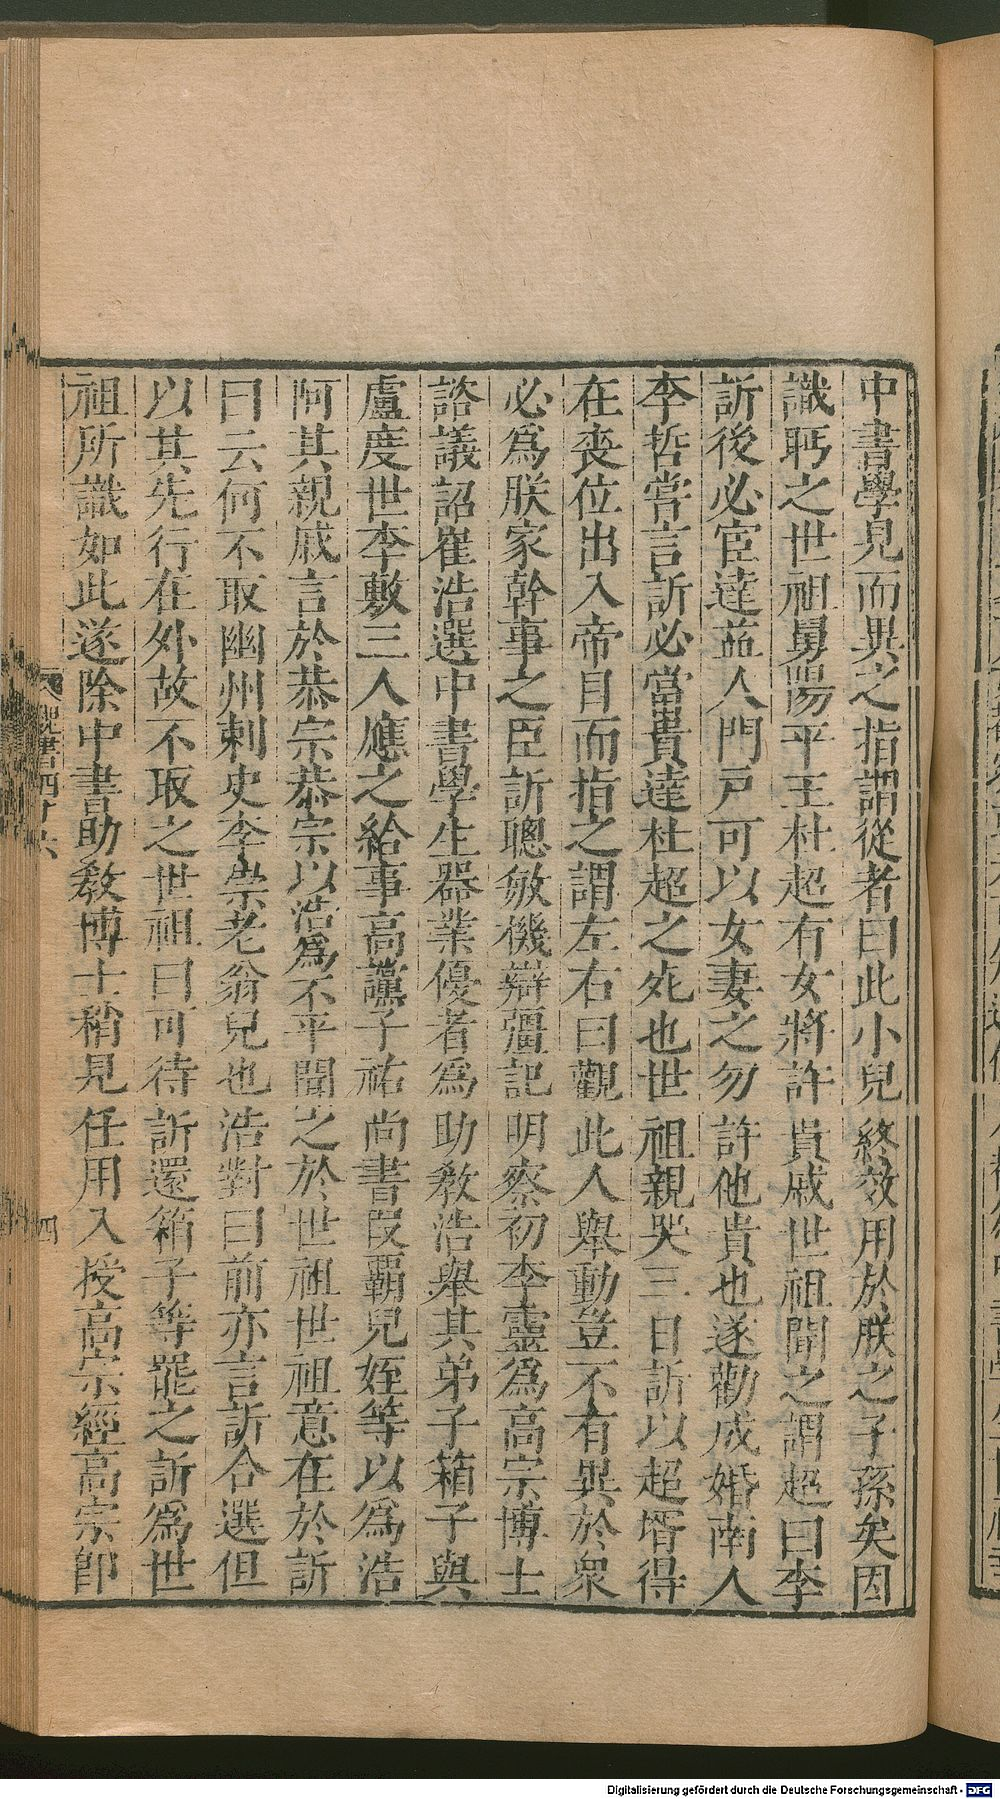 中書學見而異之指謂從者曰此小兒終效用於朕之子孫矣因
識眄之世祖舅陽平王杜超有女將許貴戚世祖聞之謂超曰李
訢後必宦達益人門戶可以女妻之勿許他貴也遂勸成婚南人
李哲嘗言訢必當貴達杜超之死也世祖親哭三日訢以超壻得
在喪位出入帝目而指之謂左右曰觀此人舉動豈不有異於衆
必爲朕家幹事之臣訢聰敏機辯彊記明察初李靈爲高宗博士
諮議詔崔浩選中書學生器業優者爲助敎浩舉其弟子箱子與
盧度世李敷三人應之給事高讜子祐尚書叚霸兒姪等以爲浩
阿其親戚言於恭宗恭宗以浩爲不平聞之於世祖世祖意在於訢
曰云何不取幽州刺史李崇老翁兒也浩對曰前亦言訢合選但
以其先行在外故不取之世祖曰可待訢還箱子等罷之訢爲世
祖所識如此遂除中書助敎博士稍見任用入授高宗經高宗卽
魏書四十六
四
Digitalisierung gefördert durch die Deutsche Forschungsgemeinschaft - DFG